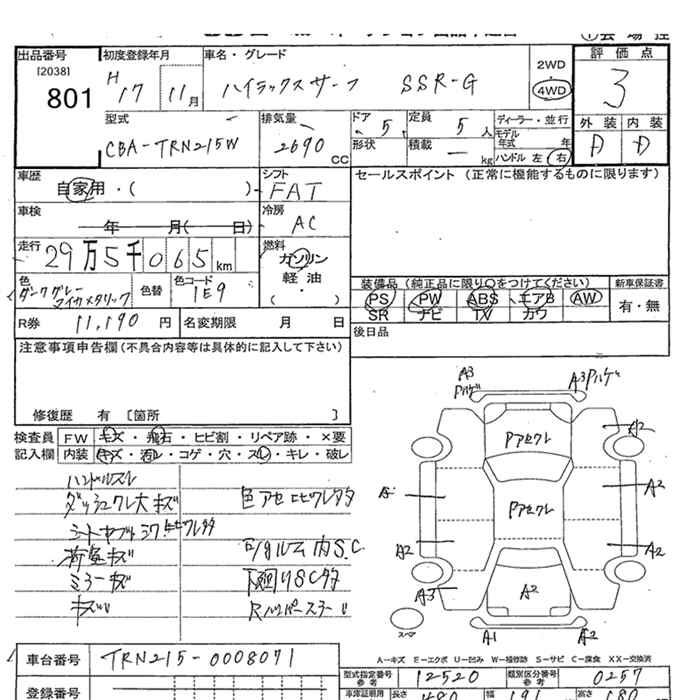 出品番号 [2038] 801
初度登録年月 H 17 11月
車名・グレード ハイラックスサーフ SSR-G
2WD
4WD
評価点 3
外装 D 内装 D
型式 CBA-TRN215W
排気量 2690 CC
ドア 5
形状
定員 5 人
積載 — kg
ディーラー・並行
モデル年式 年
ハンドル 左 右
車歴 自家用・( )
シフト FAT
セールスポイント (正常に機能するものに限ります)
車検 年 月( 日)
冷房 AC
走行 29万5千065km
燃料 ガソリン
軽油
・
( )
色 ダークグレーマイカメタリック
色替
色コード 1E9
装備品(純正品に限り○をつけてください)
PS PW ABS エアB AW
SR ナビ TV カワ
新車保証書
有・無
R券 11,190円
名変期限 月 日
後日品
注意事項申告欄(不具合内容等は具体的に記入して下さい)
修復歴 有 [箇所 ]
検査員記入欄
FW キズ・飛石・ヒビ割・リペア跡・×要
内装 キズ・汚レ・コゲ・穴・スレ・キレ・破レ
ハンドルスレ
ダッシュクレ大キズ
荷室キズ
ミラーキズ
下廻りSCタタ
A3
A3
Pアセクレ
Pアセクレ
A2
A2
A2
A2
A2
A3
A2
A1
A2
スペア
A-キズ E-エクボ U-凹み W-補修跡 S-サビ C-腐食 XX-交換済
車台番号 TRN215-0008071
型式指定番号 参考 12520
類別区分番号 参考 0257
登録番号
車庫証明用 長さ 幅 高さ